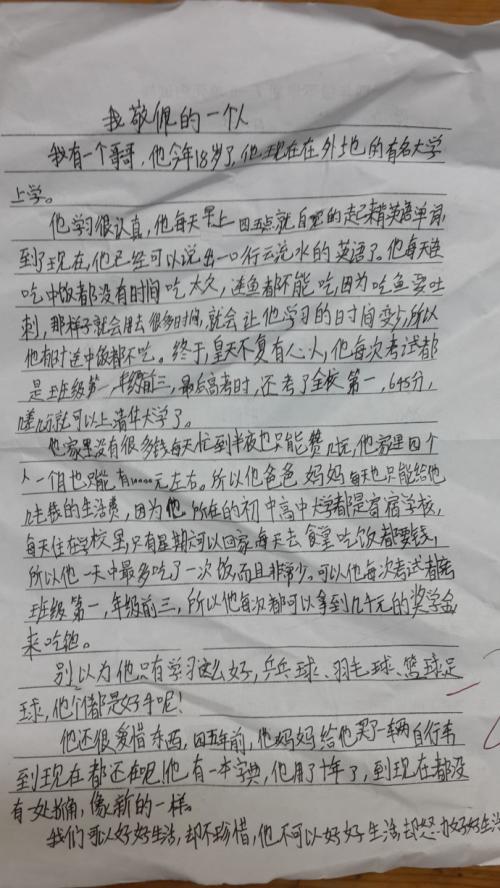 我敬佩的一个人
我有一个哥哥，他今年18岁了，他现在在外地的有名大学
上学。
他学习很认真，他每天早上四五点就自己的起来背英语单词，
到了现在，他已经可以说出一口行云流水的英语了。他每天连
吃中饭都没有时间吃太久，连鱼都不能吃，因为吃鱼要吐
刺，那样子就会用去很多时间，就会让他学习的时间变少，所以
他有时连中饭都不吃。终于，皇天不复有心人，他每次考试都
是班级第一，年级前三，最后高考时，还考了全校第一，645分，
差几分就可以上清华大学了。
他家里没有很多钱每天忙到半夜也只能赞几元，他家里四个
人一个月也只能有10000元左右。所以他爸爸妈妈每天也只能给他
几十钱的生活费，因为他所在的初中高中大学都是寄宿学校，
每天住在学校里，只有星期天可以回家，每天去食堂吃饭都要钱，
所以他一天中最多吃了一次饭，而且非常少。可以他每次考试都是
班级第一，年级前三，所以他每次都可以拿到几千元的奖学金
来吃饭。
别以为他只有学习这么好，乒乓球、羽毛球、篮球足
球，他个个都是好手呢！
他还很爱惜东西，四五年前，他妈妈给他买了一辆自行车
到现在都还在呢！他有一本字典，他用了十年了，到现在都没
有一处，像新的一样。
我们可以好好生活，却不珍惜，他不可以好好生活却努力好好生活